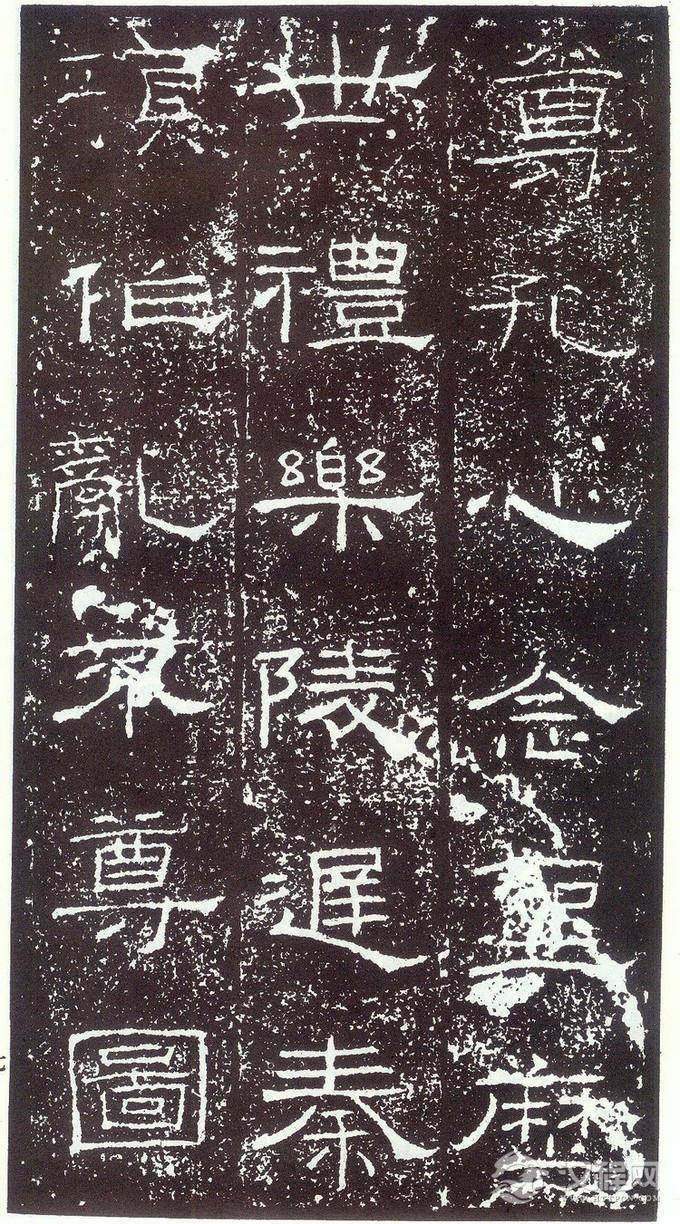 尊孔心念聖歷
世禮樂陵遲秦
項作亂不尊圖
汉程网